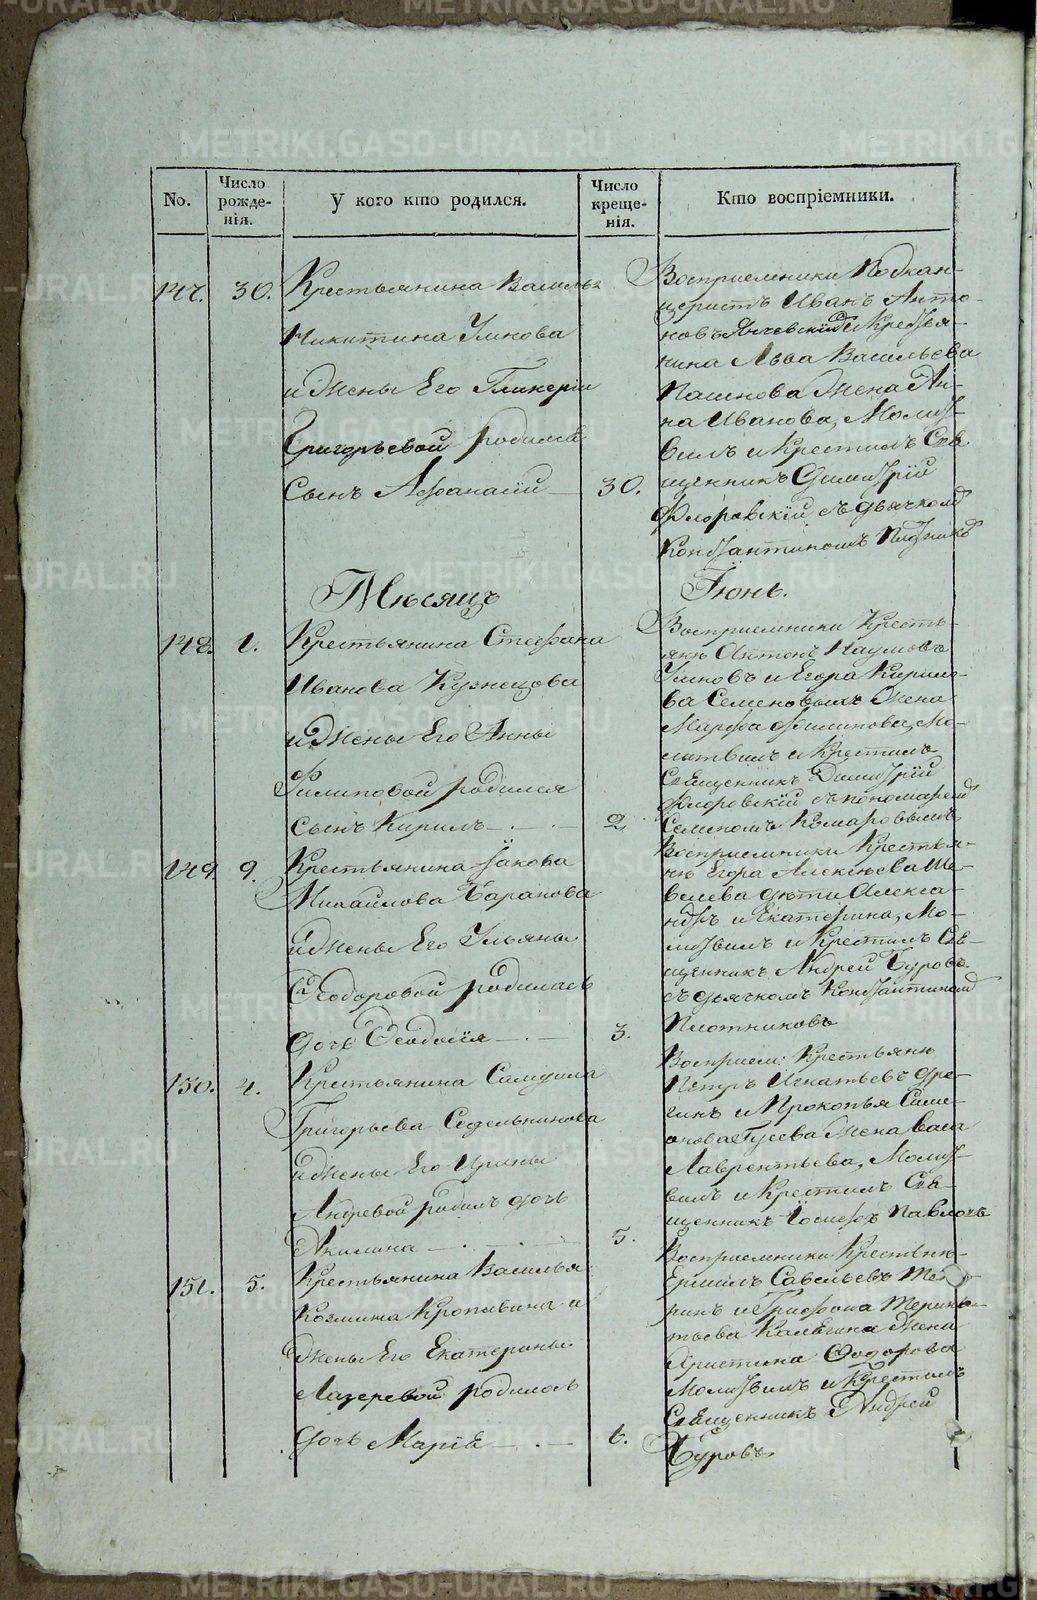 No.
Число рожде-нія.
У кого кто родился.
Число креще-нія.
Кто воспріемники.
147. 30.
Крестьянина Василья
Никитина Умнова
и Жены Его Гликеріи
Григорьевой родился
Сынъ Афанасій 30.
Восприемники Подкан-
церистъ Иванъ Анто-
новъ и Крестья-
нина Льва Васильева
Пашнова Жена Ан-
на Иванова, Молит-
вилъ и Крестилъ Свя
щенникъ Димитрій
Флоровскій съ дьячкомъ
Константиномъ
Мѣсяцъ Іюнь.
148. 1.
Крестьянина Стефана
Иванова Кузнецова
и Жены Его Анны
Филиповой родился
Сынъ Кирилъ 2
Восприемники Кресть-
яне Антонъ Наумовъ
Умновъ и Егора Кирило-
ва Семеновыхъ Жена
Марфа Филипова, Мо-
литвилъ и Крестилъ
Священникъ Димитрій
Флоровскій съ пономаремъ
Семеномъ Комаровымъ
149. 9.
Крестьянина Якова
Михайлова Баранова
и Жены Его Ульяны
Ѳеодоровой родилась
Дочь Ѳеодосія 3.
Восприемники Крестья-
не Егора Алексѣева Ше-
велева дѣти Алекса-
ндръ и Екатерина, Мо-
литвилъ и Крестилъ Свя-
щенникъ Андрей Буровъ
съ дьячкомъ Константиномъ
Плотниковъ
150. 4.
Крестьянина Самуила
Григорьева Седельникова
и Жены Его Ирины
Андревой родилъ дочь
Акилина 5.
Восприем: Крестьяне
Петръ Игнатьевъ Дре-
гинъ и Прокопья Симе-
онова Гусева Жена Васа
Лаврентьева, Молит-
вилъ и Крестилъ Свя-
щенникъ Іосифъ Павловъ
151. 5.
Крестьянина Василья
Козмина Кропивина и
Жены Его Екатерины
Лазеревой родилась
дочь Марія 6.
Восприемники Крестьяне
Ермилъ Савельевъ
и Трифона Терень-
тьева Калегина Жена
Христина Ѳодорова
Молитвилъ и Крестилъ
Священникъ Андрей
Буровъ
METRIKI.GASO-URAL.RU